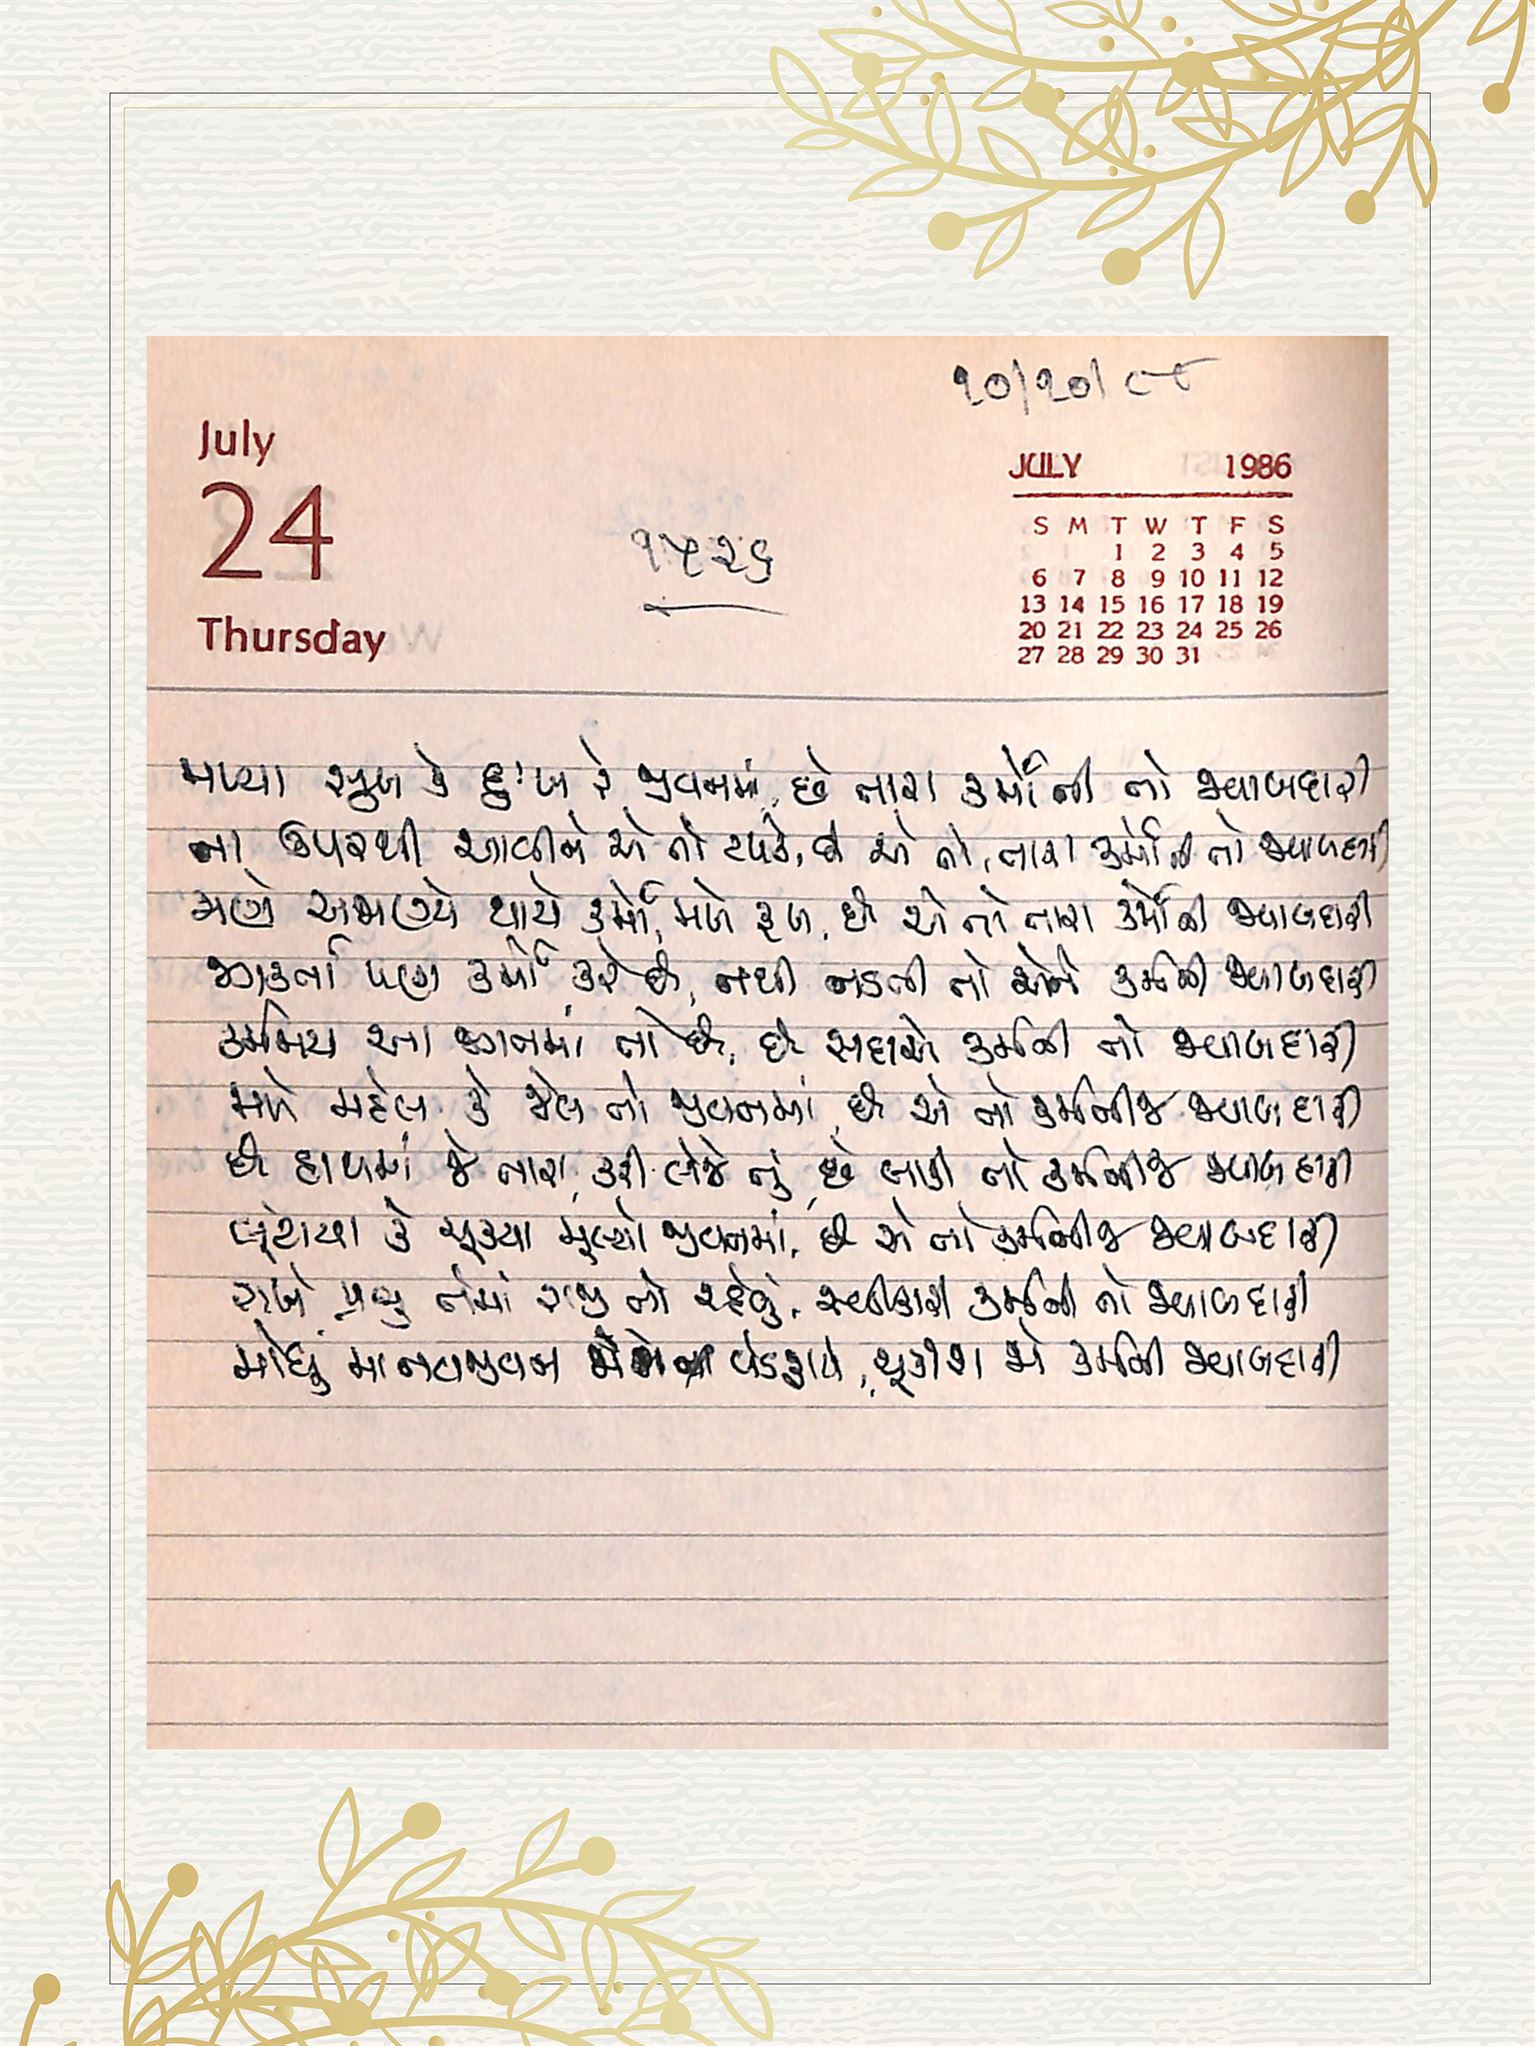 ૧૦/૧૦/૮૮
July
24
Thursday
૧૫૨૬
JULY 1986
S M T W T F S
1 2 3 4 5
6 7 8 9 10 11 12
13 14 15 16 17 18 19
20 21 22 23 24 25 26
27 28 29 30 31
મળ્યા સુખ કે દુઃખ રે જીવનમાં, છે તારા કર્મોની તો જવાબદારી
ના ઉપરથી આવીને એ તો ટપકે, છે એ તો, તારા કર્મોની તો જવાબદારી
જાણે અજાણ્યે થાયે કર્મો, મળે ફળ, છે એ તો તારા કર્મોની જવાબદારી
જાગૃતા પણ કર્મો કરે છે, નથી નડતી તો એને કર્મની જવાબદારી
કર્મમય આ જગમાં તો છે, છે સદાએ કર્મની તો જવાબદારી
મળે મહેલ કે જેલ તો જીવનમાં, છે એ તો કર્મનીજ જવાબદારી
છે હાથમાં જે તારા, કરી લેજે તું, છે બાકી તો કર્મનીજ જવાબદારી
લૂંટાયા કે ચૂક્યા મૂલ્યો જીવનમાં, છે એ તો કર્મનીજ જવાબદારી
રાખે પ્રભુ તેમાં રાજી તો રહેવું, સ્વીકારી કર્મની તો જવાબદારી
મોંઘું માનવજીવન વેડફાયે, ચૂકીશ જો કર્મની જવાબદારી